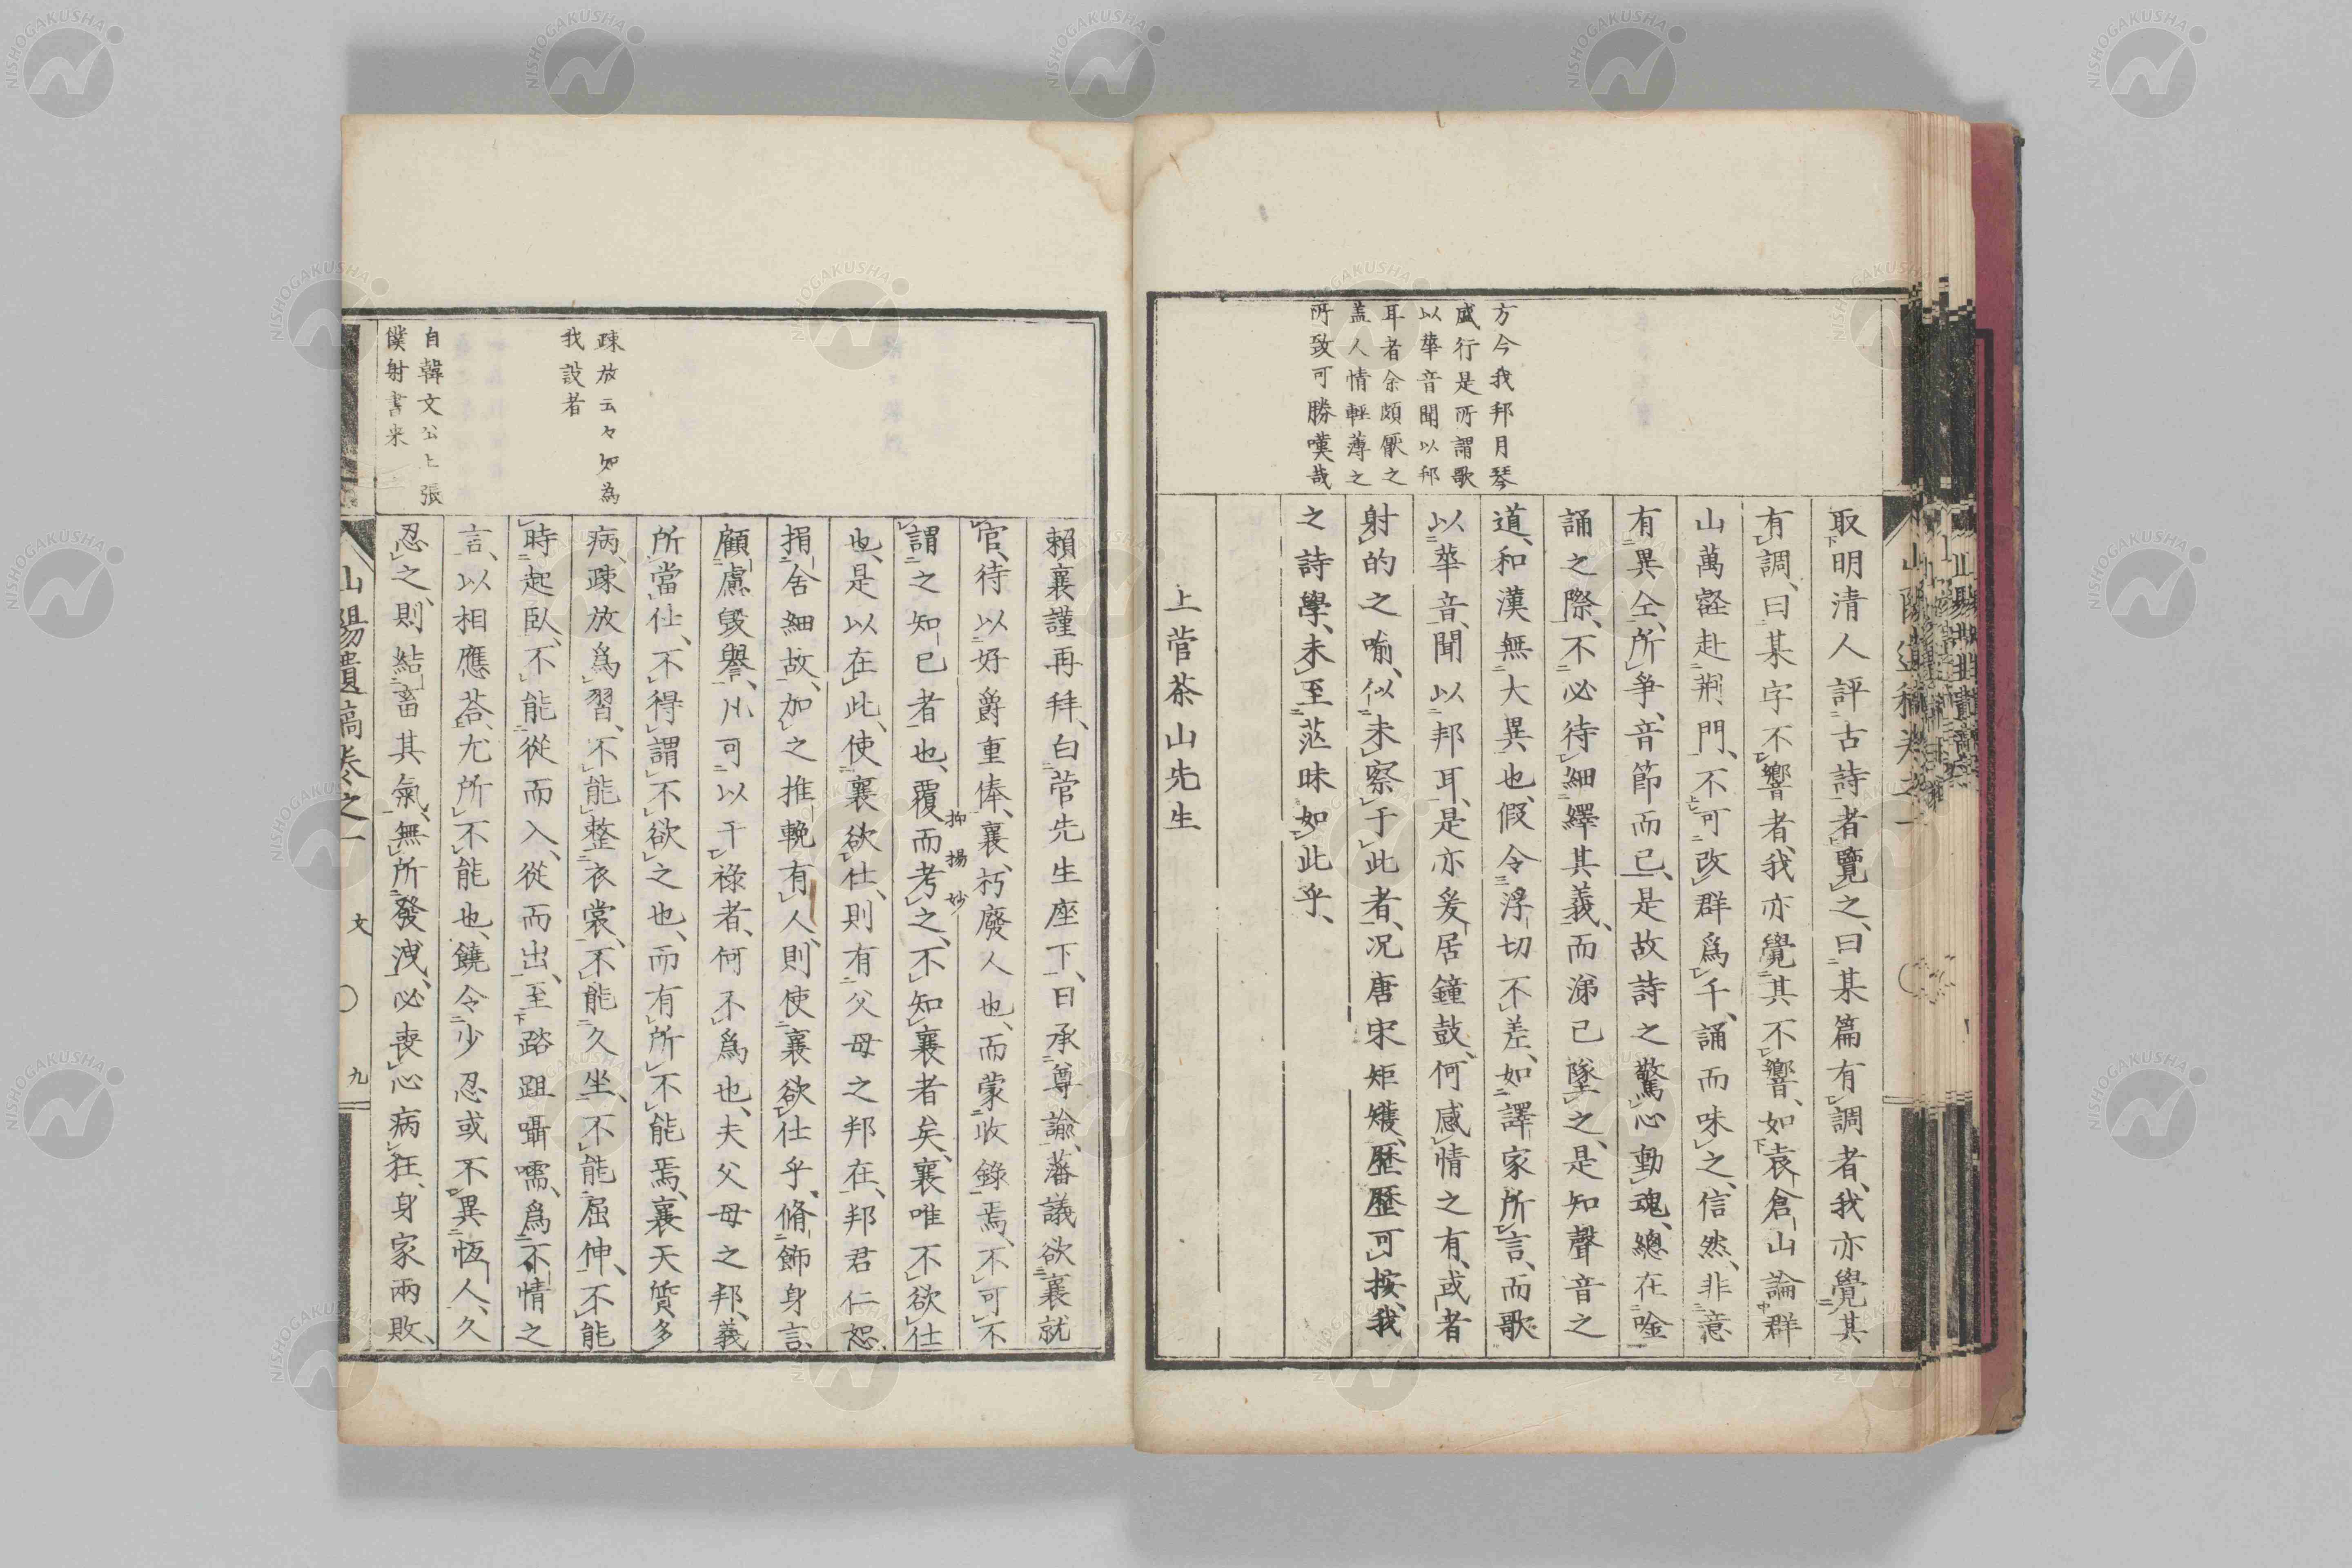 方今我邦月琴
盛行是所謂歌
以華音聞以邦
耳者余頗厭之
蓋人情輕薄之
所致可勝嘆哉
取明清人評古詩者覽之曰某篇有調者我亦覺其
有調曰某字不響者我亦覺其不響如袁倉山論群
山萬壑赴荆門不可改群爲千誦而味之信然非意
有異仝所爭音節而已是故詩之驚心動魂總在唫
誦之際不必待細繹其義而涕已墜之是知聲音之
道和漢無大異也假令浮切不差如譯家所言而歌
以華音聞以邦耳是亦爰居鐘鼓何感情之有或者
射的之喻似未察于此者况唐宋矩矱歷歷可按我
之詩學未至茫昧如此乎
上菅茶山先生
疎放云々如為
我設者
自韓文公上張
僕射書来
賴襄謹再拜白菅先生座下日承尊諭藩議欲襄就
官待以好爵重俸襄朽廢人也而蒙收錄焉不可不
抑揚妙
謂之知己者也覆而考之不知襄者矣襄唯不欲仕
也是以在此使襄欲仕則有父母之邦在邦君仁恕
捐舍細故加之推輓有人則使襄欲仕乎脩飾身言
顧慮毀譽凡可以干祿者何不爲也夫父母之邦義
所當仕不得謂不欲之也而有所不能焉襄天質多
病疎放爲習不能整衣裳不能久坐不能屈伸不能
時起臥不能從而入從而出至䠖跙囁嚅爲不情之
言以相應荅尤所不能也饒令少忍或不異恆人久
忍之則結畜其氣無所發洩必喪心病狂身家兩敗
山陽遺稿卷之一
文
〇
九
山陽遺稿卷之一
NISHOGAKUSHA